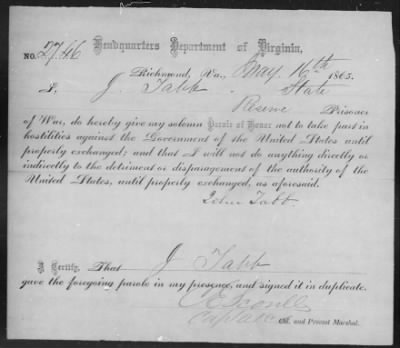 Headquarters Department of Virginia,
NO. 2746
Richmond, Va., May 16th 1865.
I, J. Tabb State
Reserve Prisoner
of War, do hereby give my solemn Parole of Honor not to take part in
hostilities against the Government of the United States until
properly exchanged; and that I will not do anything directly or
indirectly to the detriment or disparagement of the authority of the
United States, until properly exchanged, as aforesaid.
John Tabb
I Certify, That J Tabb
gave the foregoing parole in my presence, and signed it in duplicate.
Col. and Provost Marshal.